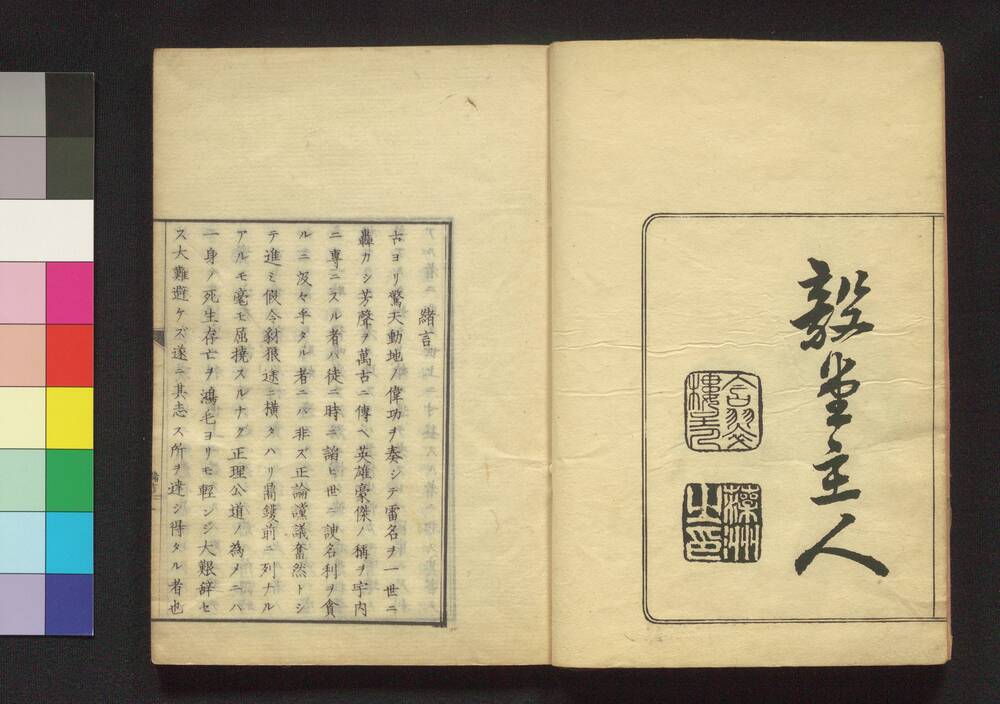 毅堂主人
緒言
古ヨリ驚天動地ノ偉功ヲ奏シテ雷名ヲ一世ニ
轟カシ芳聲ヲ萬古ニ傳ヘ英雄豪傑ノ稱ヲ宇内
ニ專ニスル者ハ徒ニ時ニ諂ヒ世ニ諛名利ヲ貪
ルニ汲々乎タル者ニハ非ズ正論讜議奮然トシ
テ進ミ假令豺狼途ニ横タハリ鼎鑊前ニ列ナル
アルモ毫モ屈撓スルナク正理公道ノ為メニハ
一身ノ死生存亡ヲ鴻毛ヨリモ輕ンジ大艱辞セ
ス大難避ケズ遂ニ其志ス所ヲ達シ得タル者也